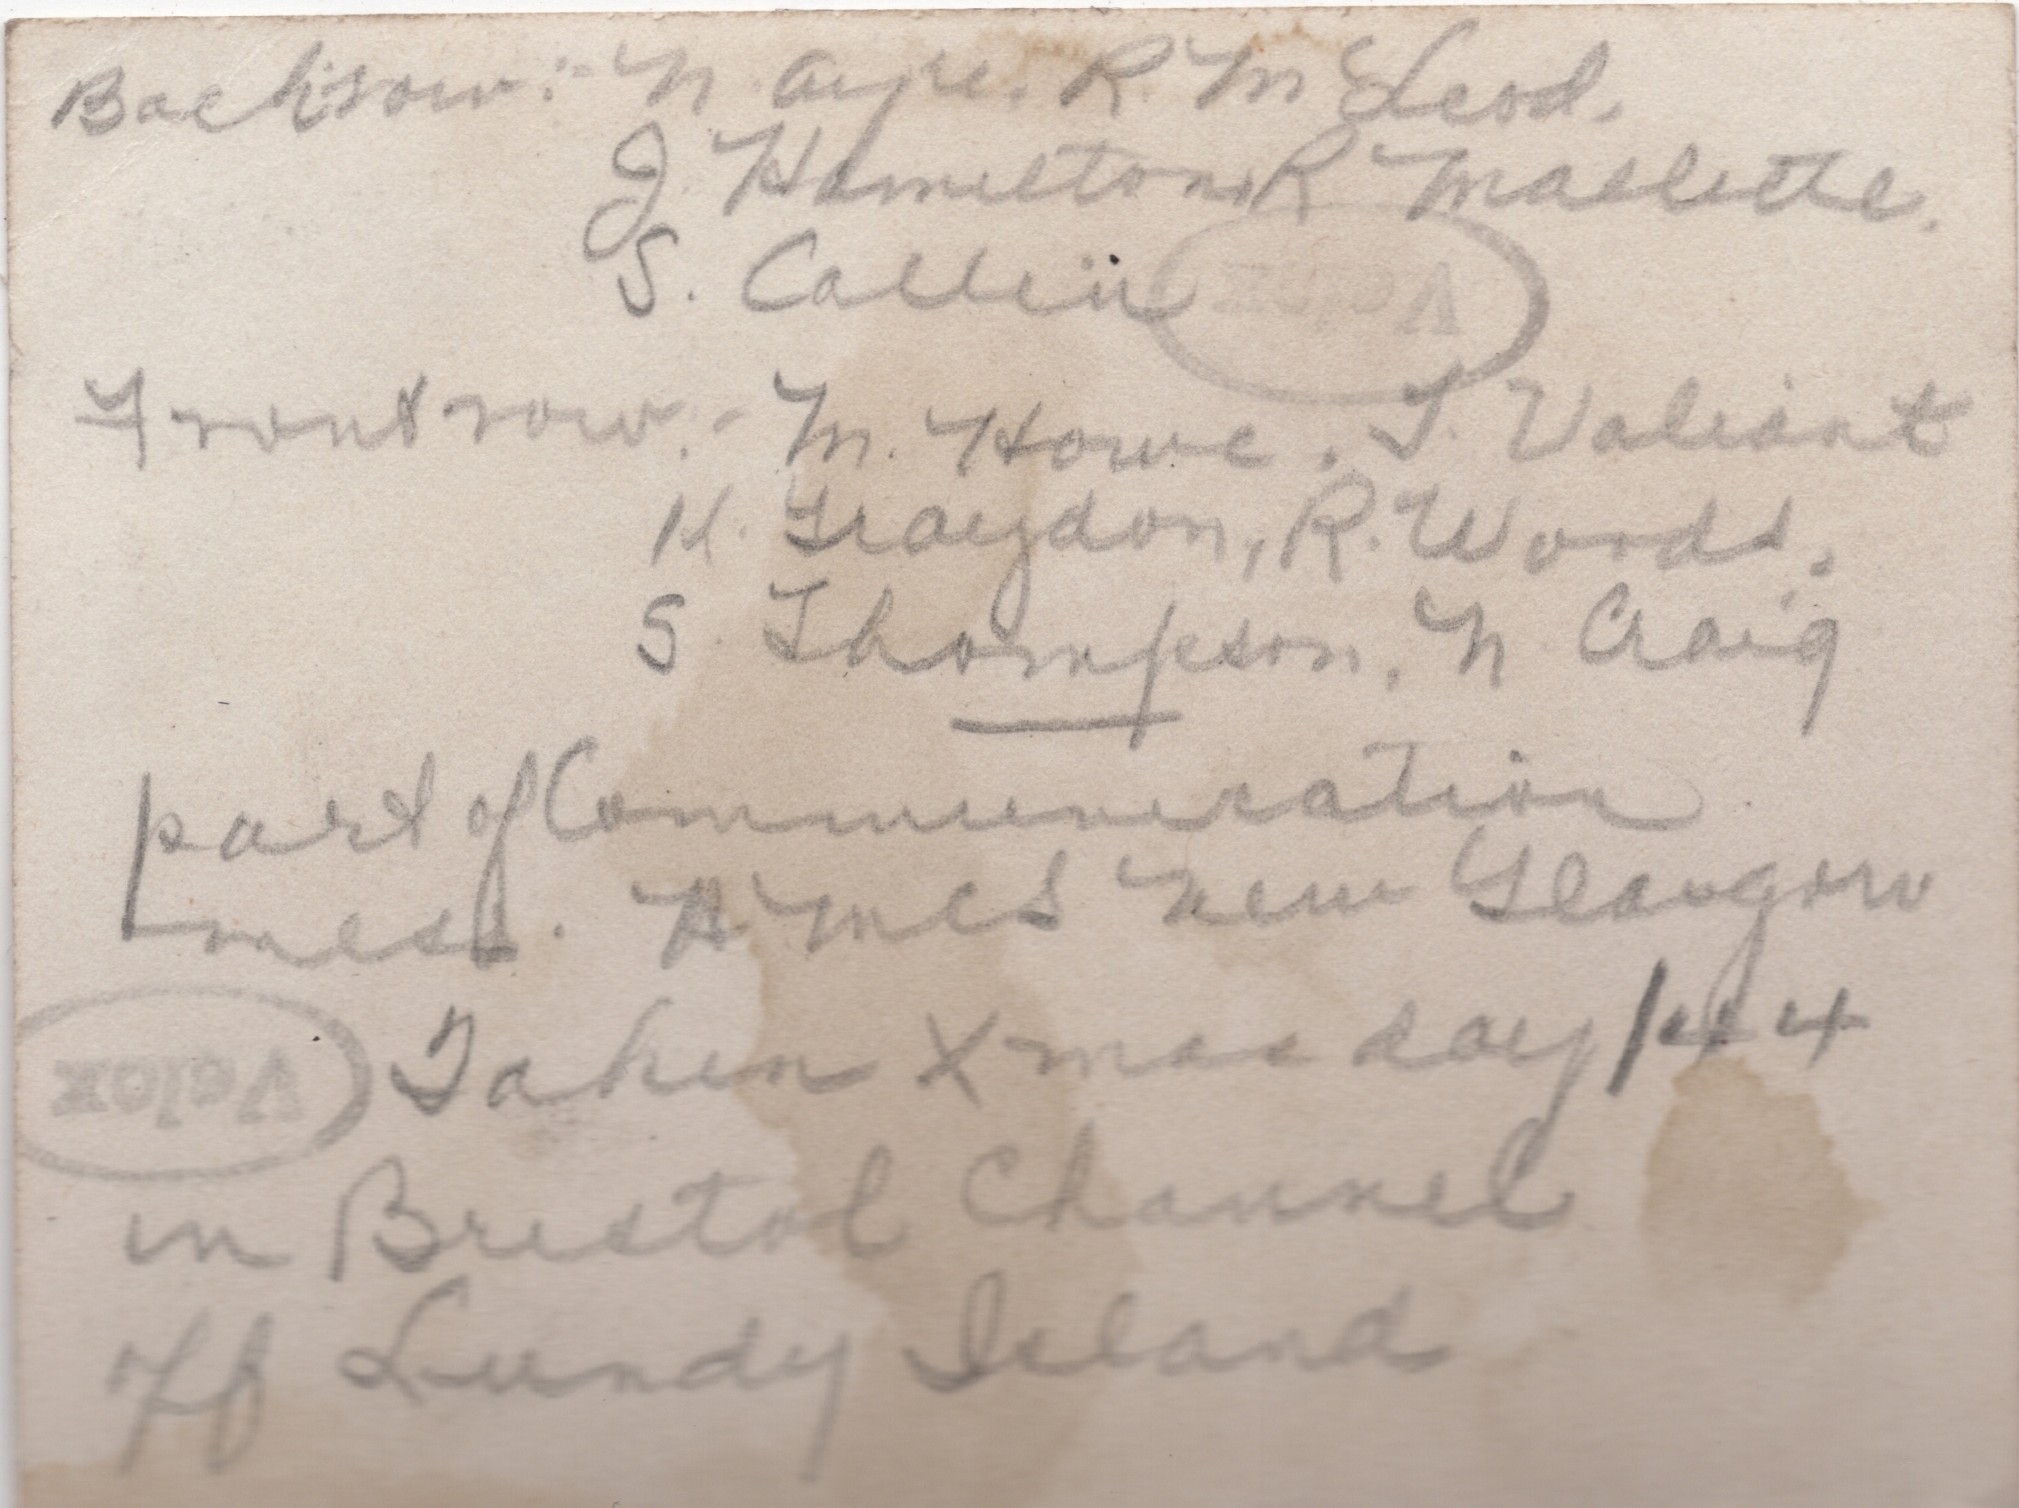 Back row:- N. Ayre. R. McLeod.
J. Hamilton, R Mallette.
S. Callein
Velox
Front row:- M. Howe. T. Valiant
H. Graydon, R. Woods.
S. Thompson, N. Craig
part of Communication
mess. HMCS New Glasgow
Velox
Taken Xmas day 1944
in Bristol Channel
off Lundy Island